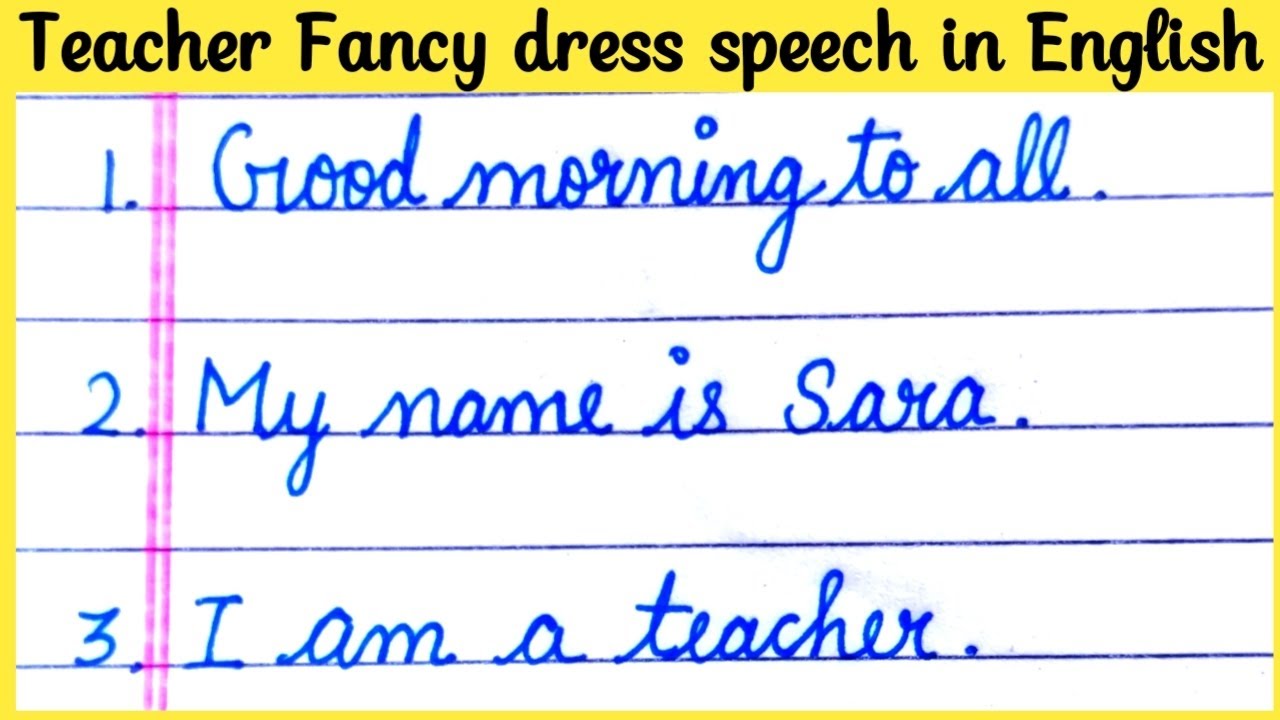 Teacher Fancy dress speech in English
1. Good morning to all.
2. My name is Sara.
3. I am a teacher.